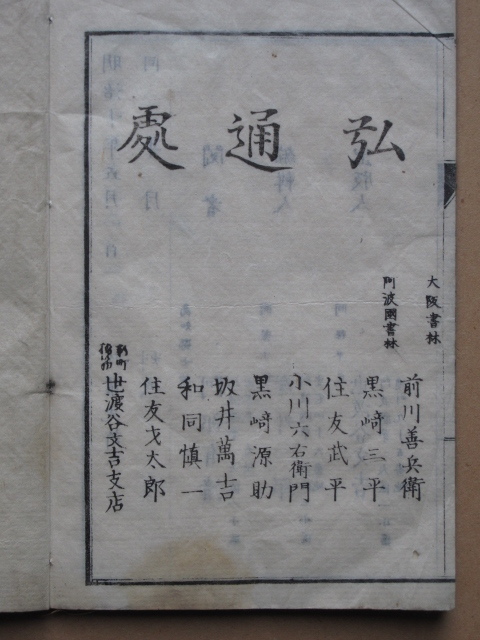 弘通處
大阪書林
前川善兵衛
阿波國書林
黒﨑三平
住友武平
小川六右衛門
黒﨑源助
坂井萬吉
和同慎一
住友戈太郎
新町
世渡谷文吉支店